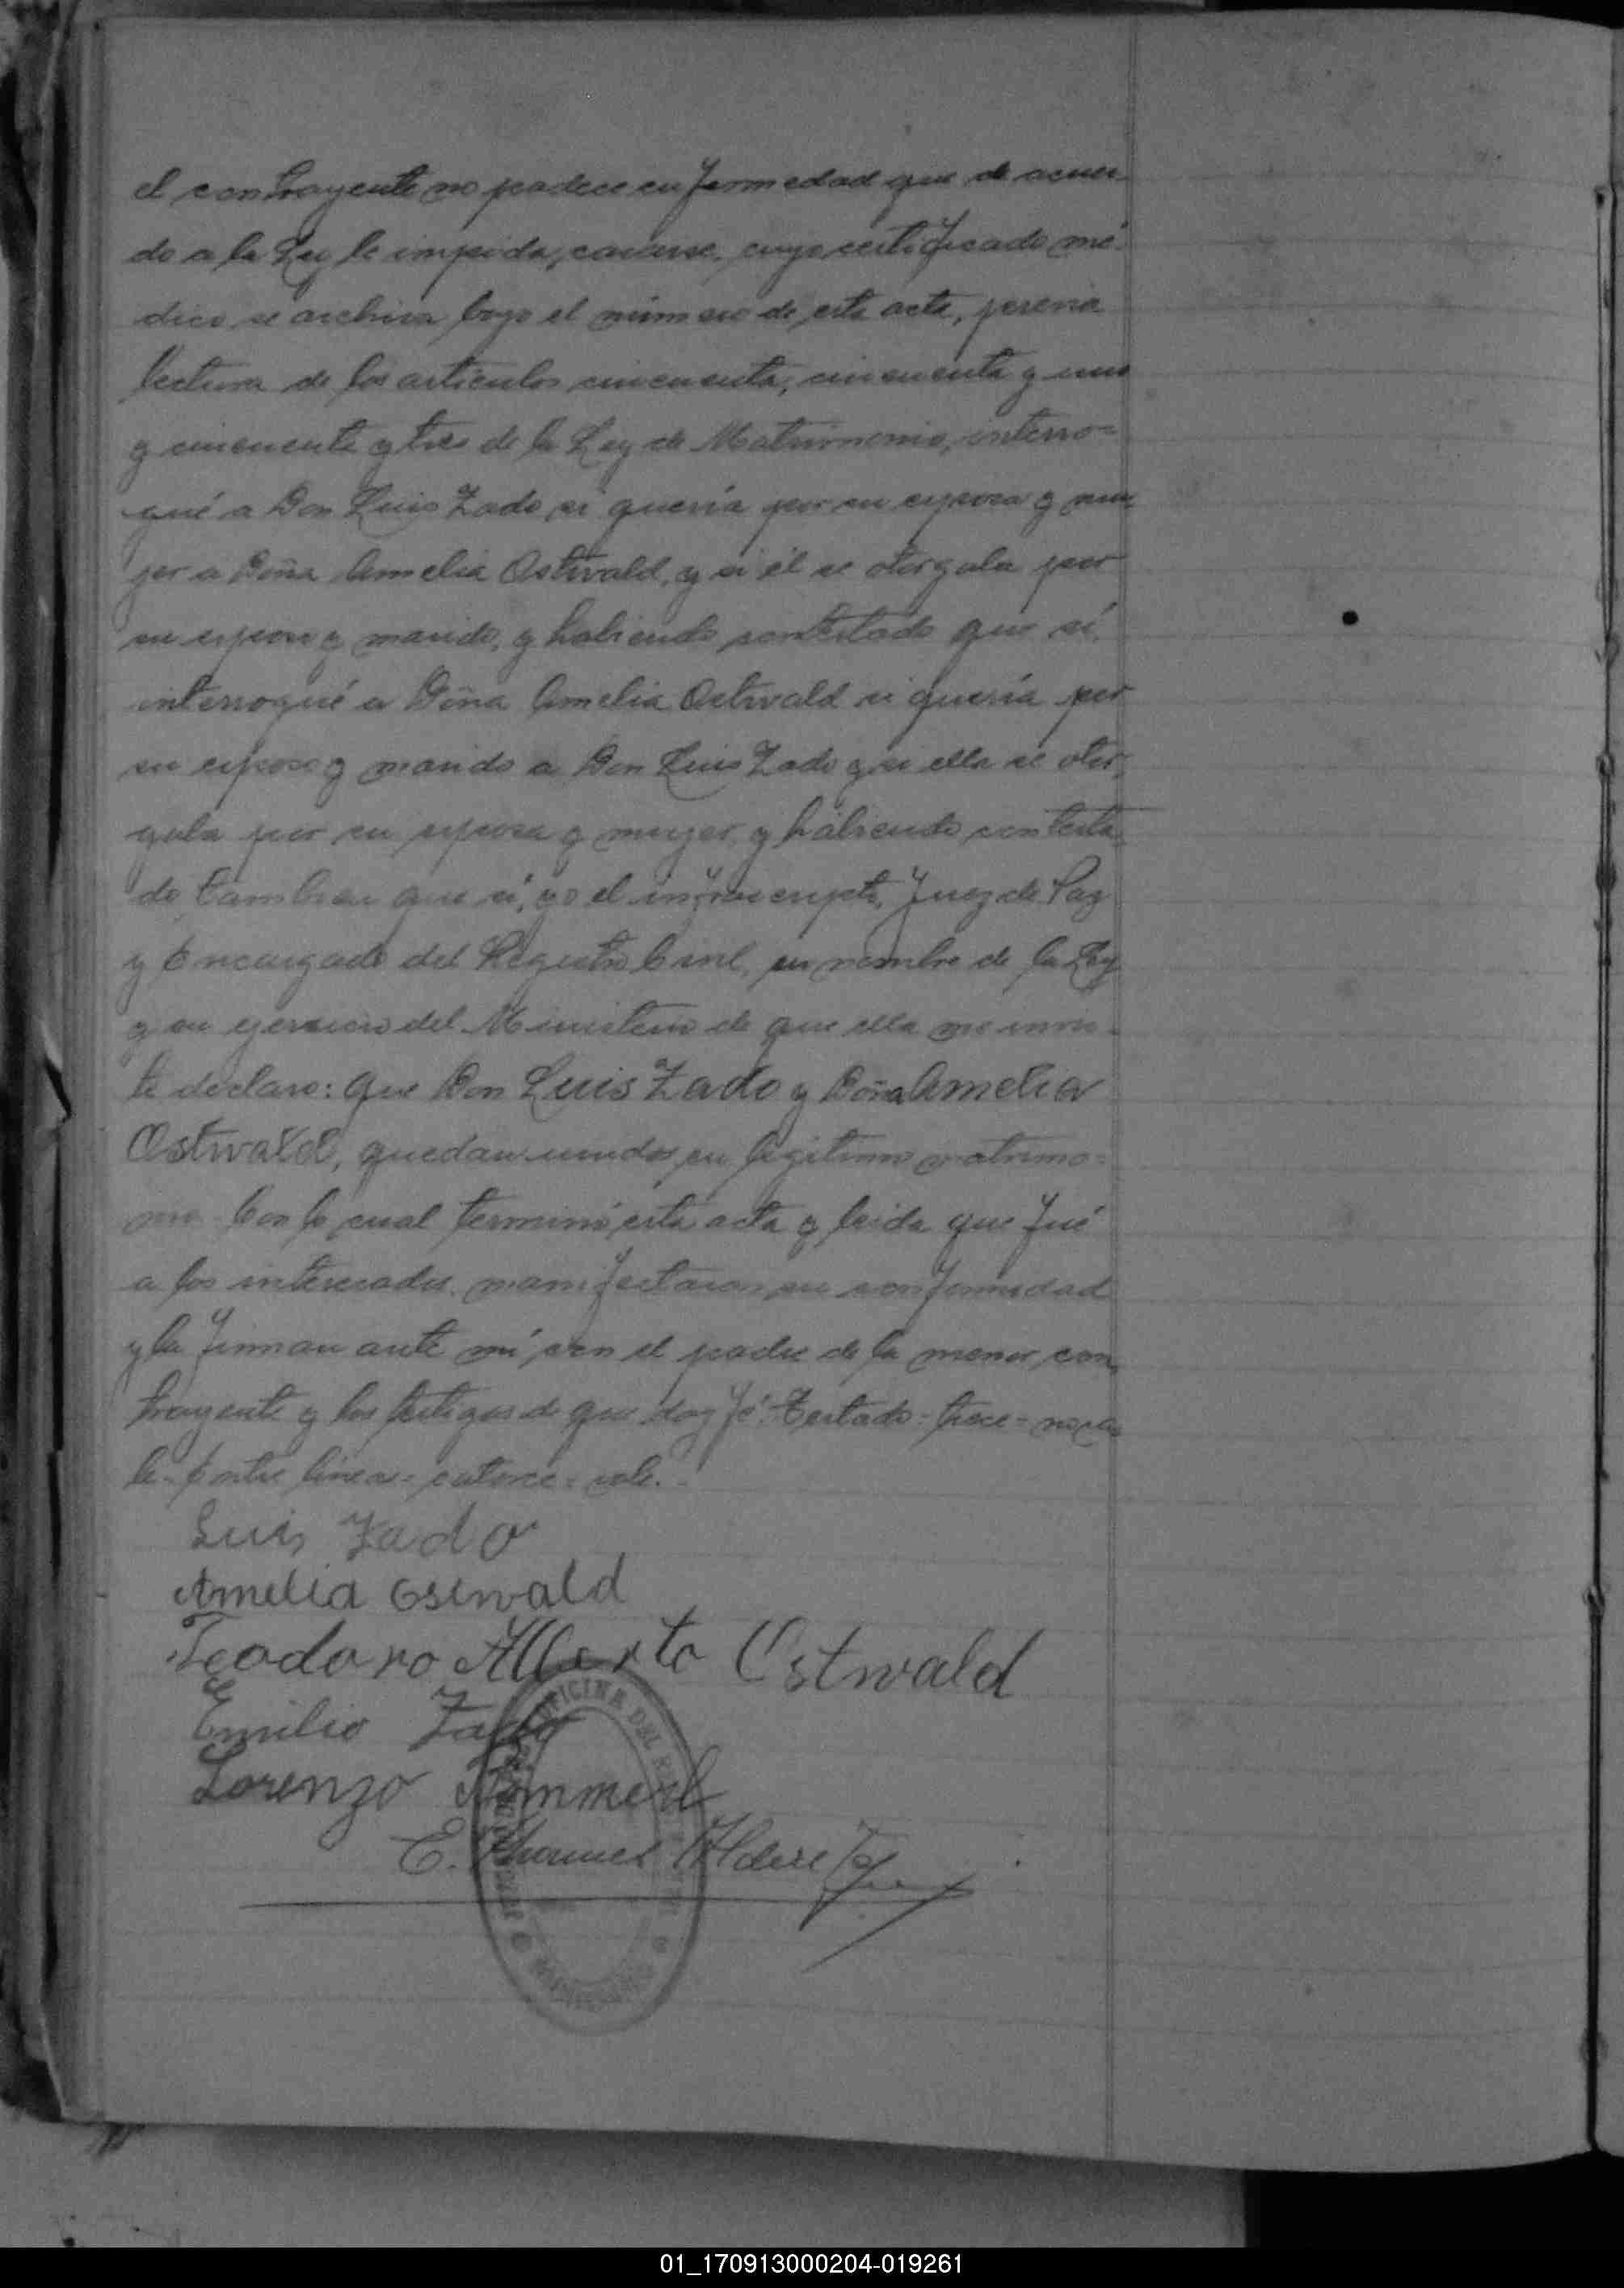 el contrayente no padece enfermedad que de acuer-
do a la Ley le impida, casarse, cuyo certificado mé-
dico se archiva bajo el número de esta acta, previa
lectura de los artículos cincuenta, cincuenta y uno
y cincuenta y tres de la Ley de Matrimonio, interro=
gué a Don Luis Zado si quería por su esposa y mu-
jer a Doña Amelia Ostwald, y si él se otorgaba por
su esposo y marido, y habiendo contestado que sí,
interrogué a Doña Amelia Ostwald si quería por
su esposo y marido a Don Luis Zado y si ella se otor-
gaba por su esposa y mujer, y habiendo contesta-
do tambien que sí, yo el infrascripto, Juez de Paz
y Encargado del Registro Civil, en nombre de la Ley
y en ejercicio del Ministerio de que ella me invis-
te declaro: que Don Luis Zado y Doña Amelia
Ostwald, quedan unidos en legitimo matrimo=
nio. Con lo cual terminó esta acta y leida que fué
a los interesados manifestaron su conformidad
y la firman ante mí, con el padre de la menor con-
trayente y los testigos de que doy fé. Testado= trece= no va-
le- Entre líneas= catorce= vale.-
Luis Zado
Amelia Ostwald
Teodoro Alberto Ostwald
Emilio Zado
Lorenzo
E. Manuel Alderete
OFICINA DEL REGISTRO CIVIL
01_170913000204-019261